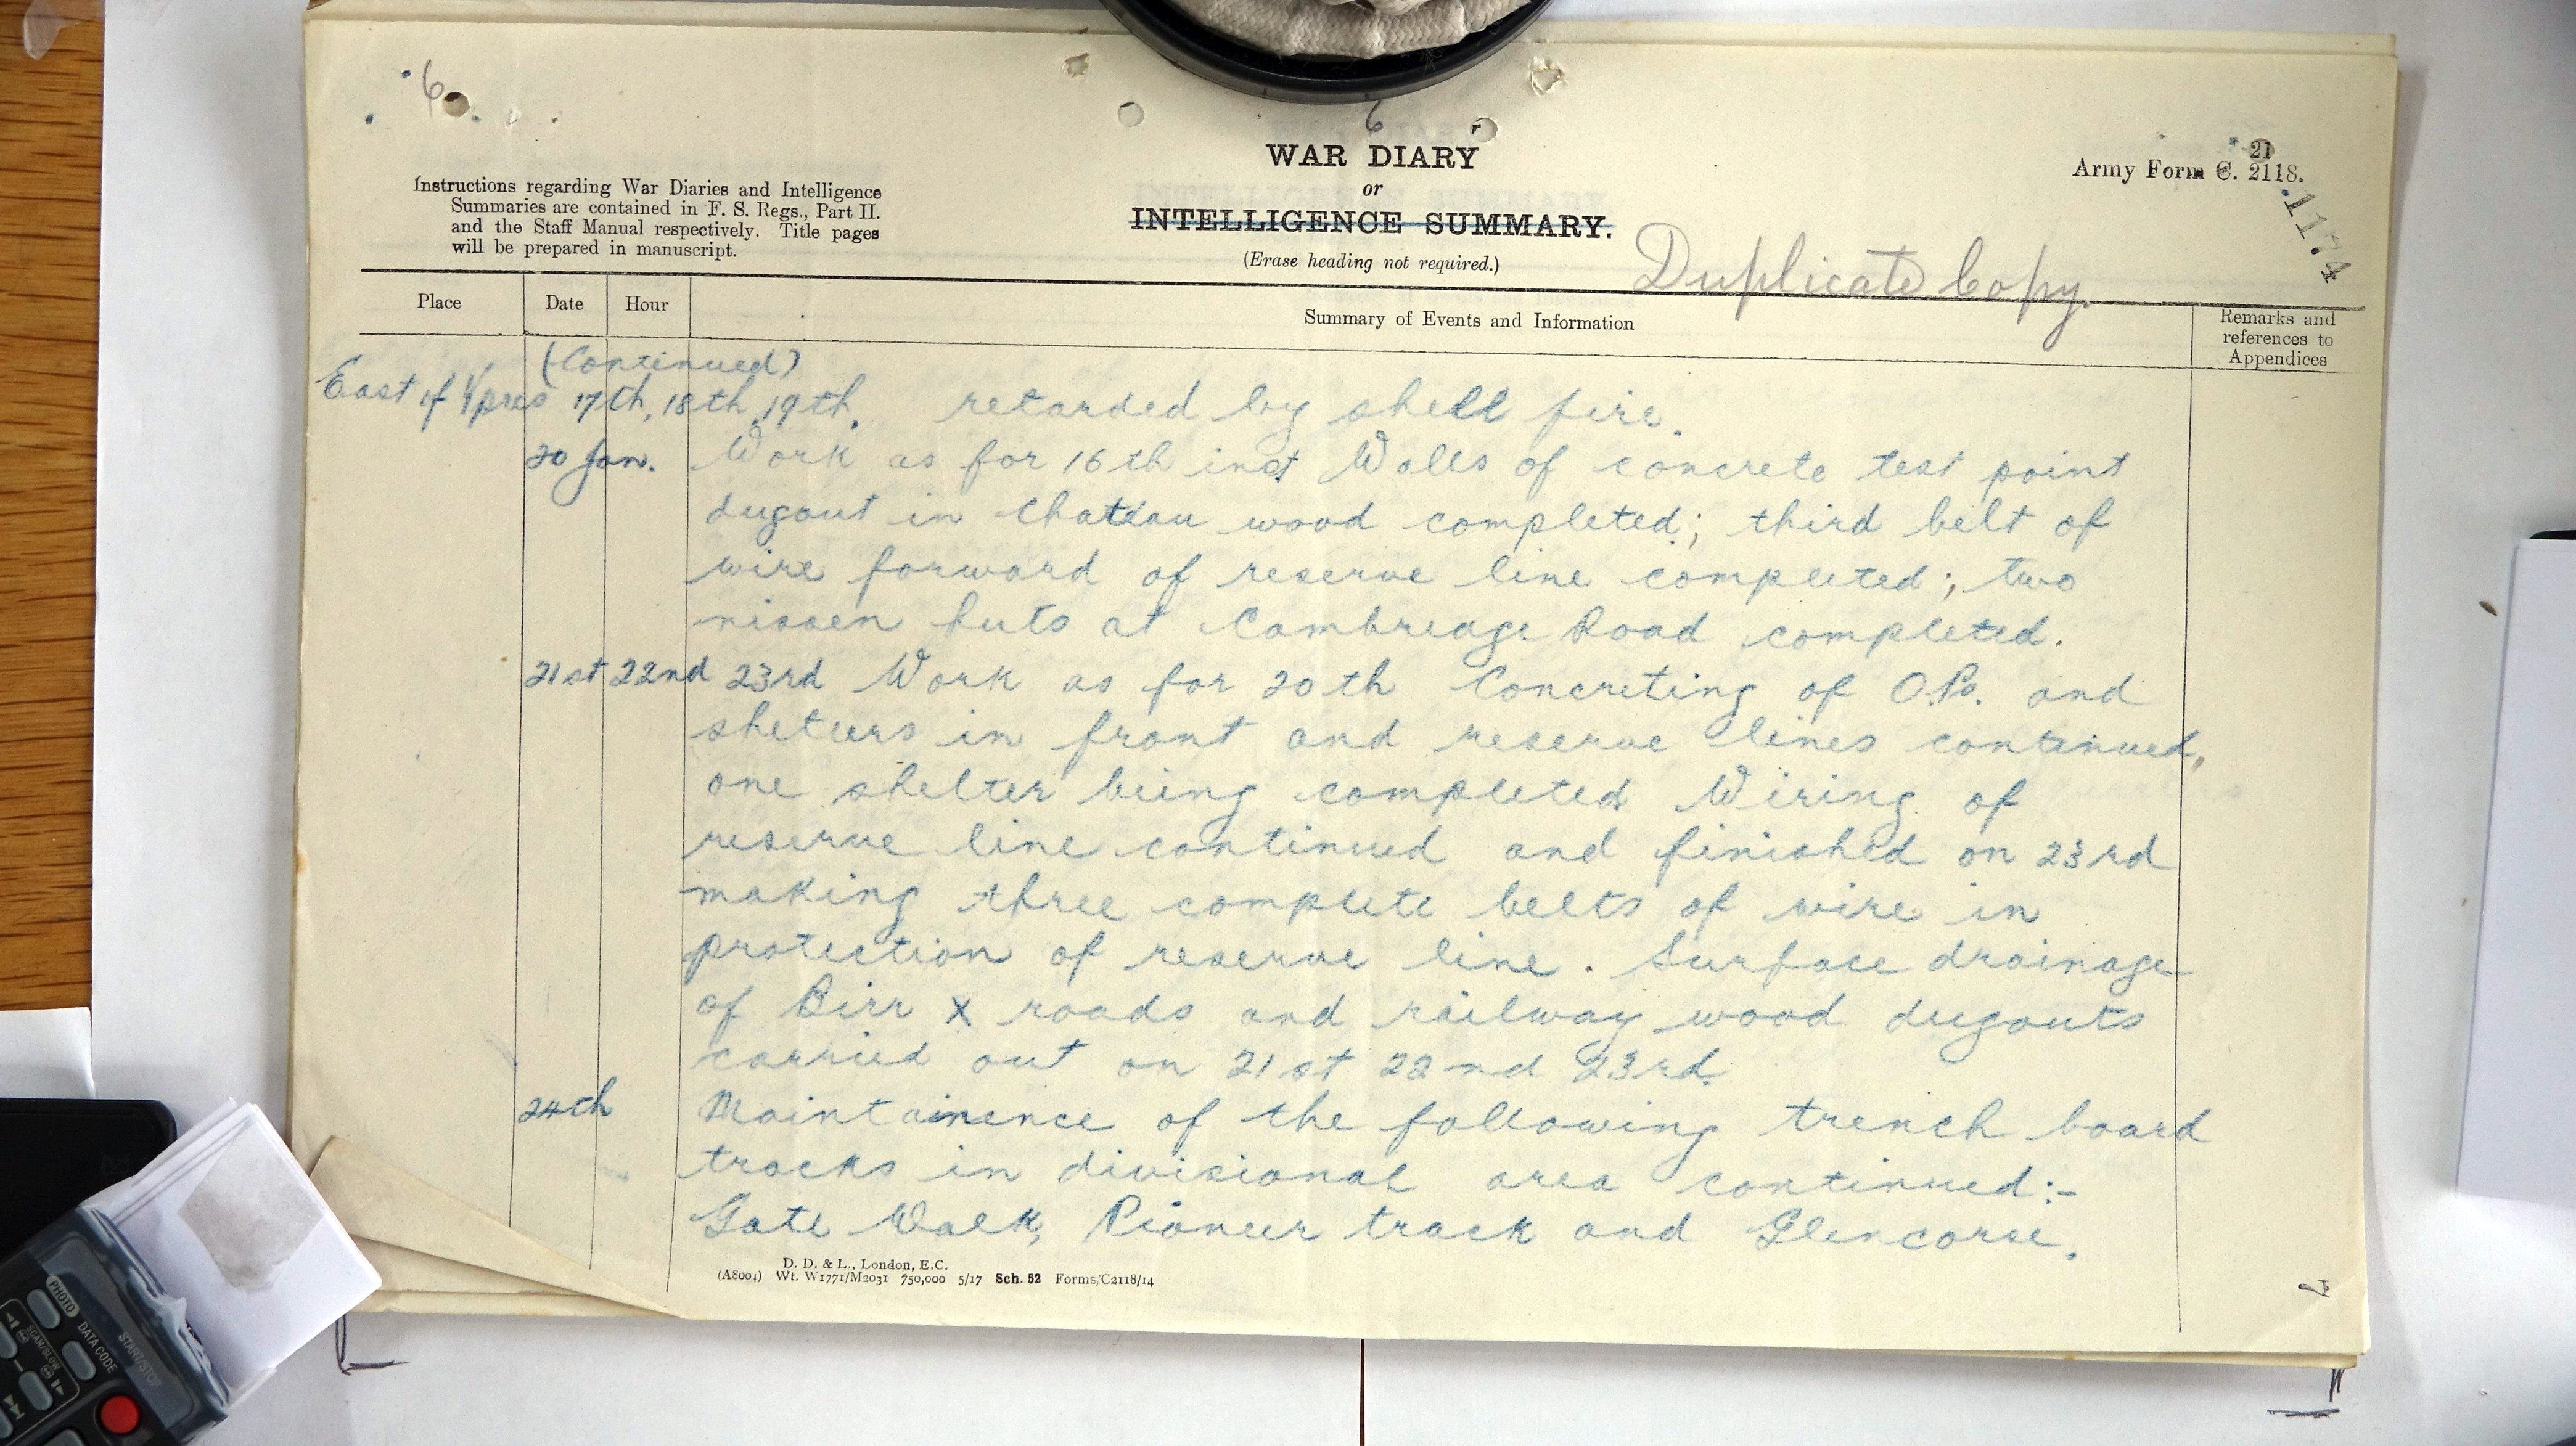 6
6
WAR DIARY
or
INTELLIGENCE SUMMARY.
(Erase heading not required.)
Instructions regarding War Diaries and Intelligence
Summaries are contained in F. S. Regs., Part II.
and the Staff Manual respectively. Title pages
will be prepared in manuscript.
21
Army Form C. 2118.
Duplicate Copy.
Place Date Hour Summary of Events and Information Remarks and
references to
Appendices
(Continued)
East of Ypres 17th, 18th, 19th. retarded by shell fire.
20 Jan. Work as for 16th inst Walls of concrete test point
dugout in Chateau wood completed; third belt of
wire forward of reserve line completed; two
nissen huts at Cambreage Road completed.
21st 22nd 23rd Work as for 20th Concreting of O.Ps. and
shelters in front and reserve lines continued,
one shelter being completed Wiring of
reserve line continued and finished on 23rd
making three complete belts of wire in
protection of reserve line. Surface drainage
of Birr X roads and railway wood dugouts
carried out on 21st 22nd 23rd.
24th Maintainence of the following trench board
tracks in divisional area continued:-
Gate Walk, Pioneer track and Glencorse.
D. D. & L., London, E.C.
(A8004) Wt. W1771/M2031 750,000 5/17 Sch. 52 Forms/C2118/14
PHOTO
DATA CODE
START/STOP
SCAN/SLOW